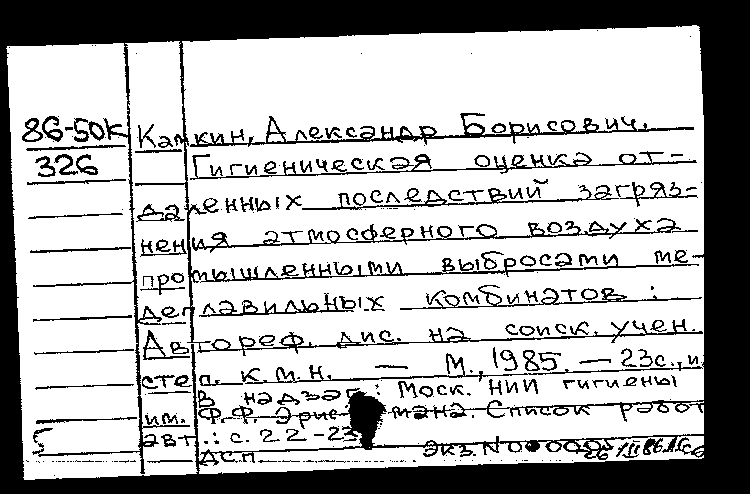 86-50К Капкин, Александр Борисович.
326 Гигиеническая оценка от-
даленных последствий загряз-
нения атмосферного воздуха
промышленными выбросами ме-
деплавильных комбинатов :
Автореф. дис. на соиск. учен.
степ. к.м.н. — М., 1985. — 23с.,
В надзаг.: Моск. НИИ гигиены
им. Ф.Ф. Эрисмана. Список работ
авт.: с. 22-23
ДСП. Экз. N